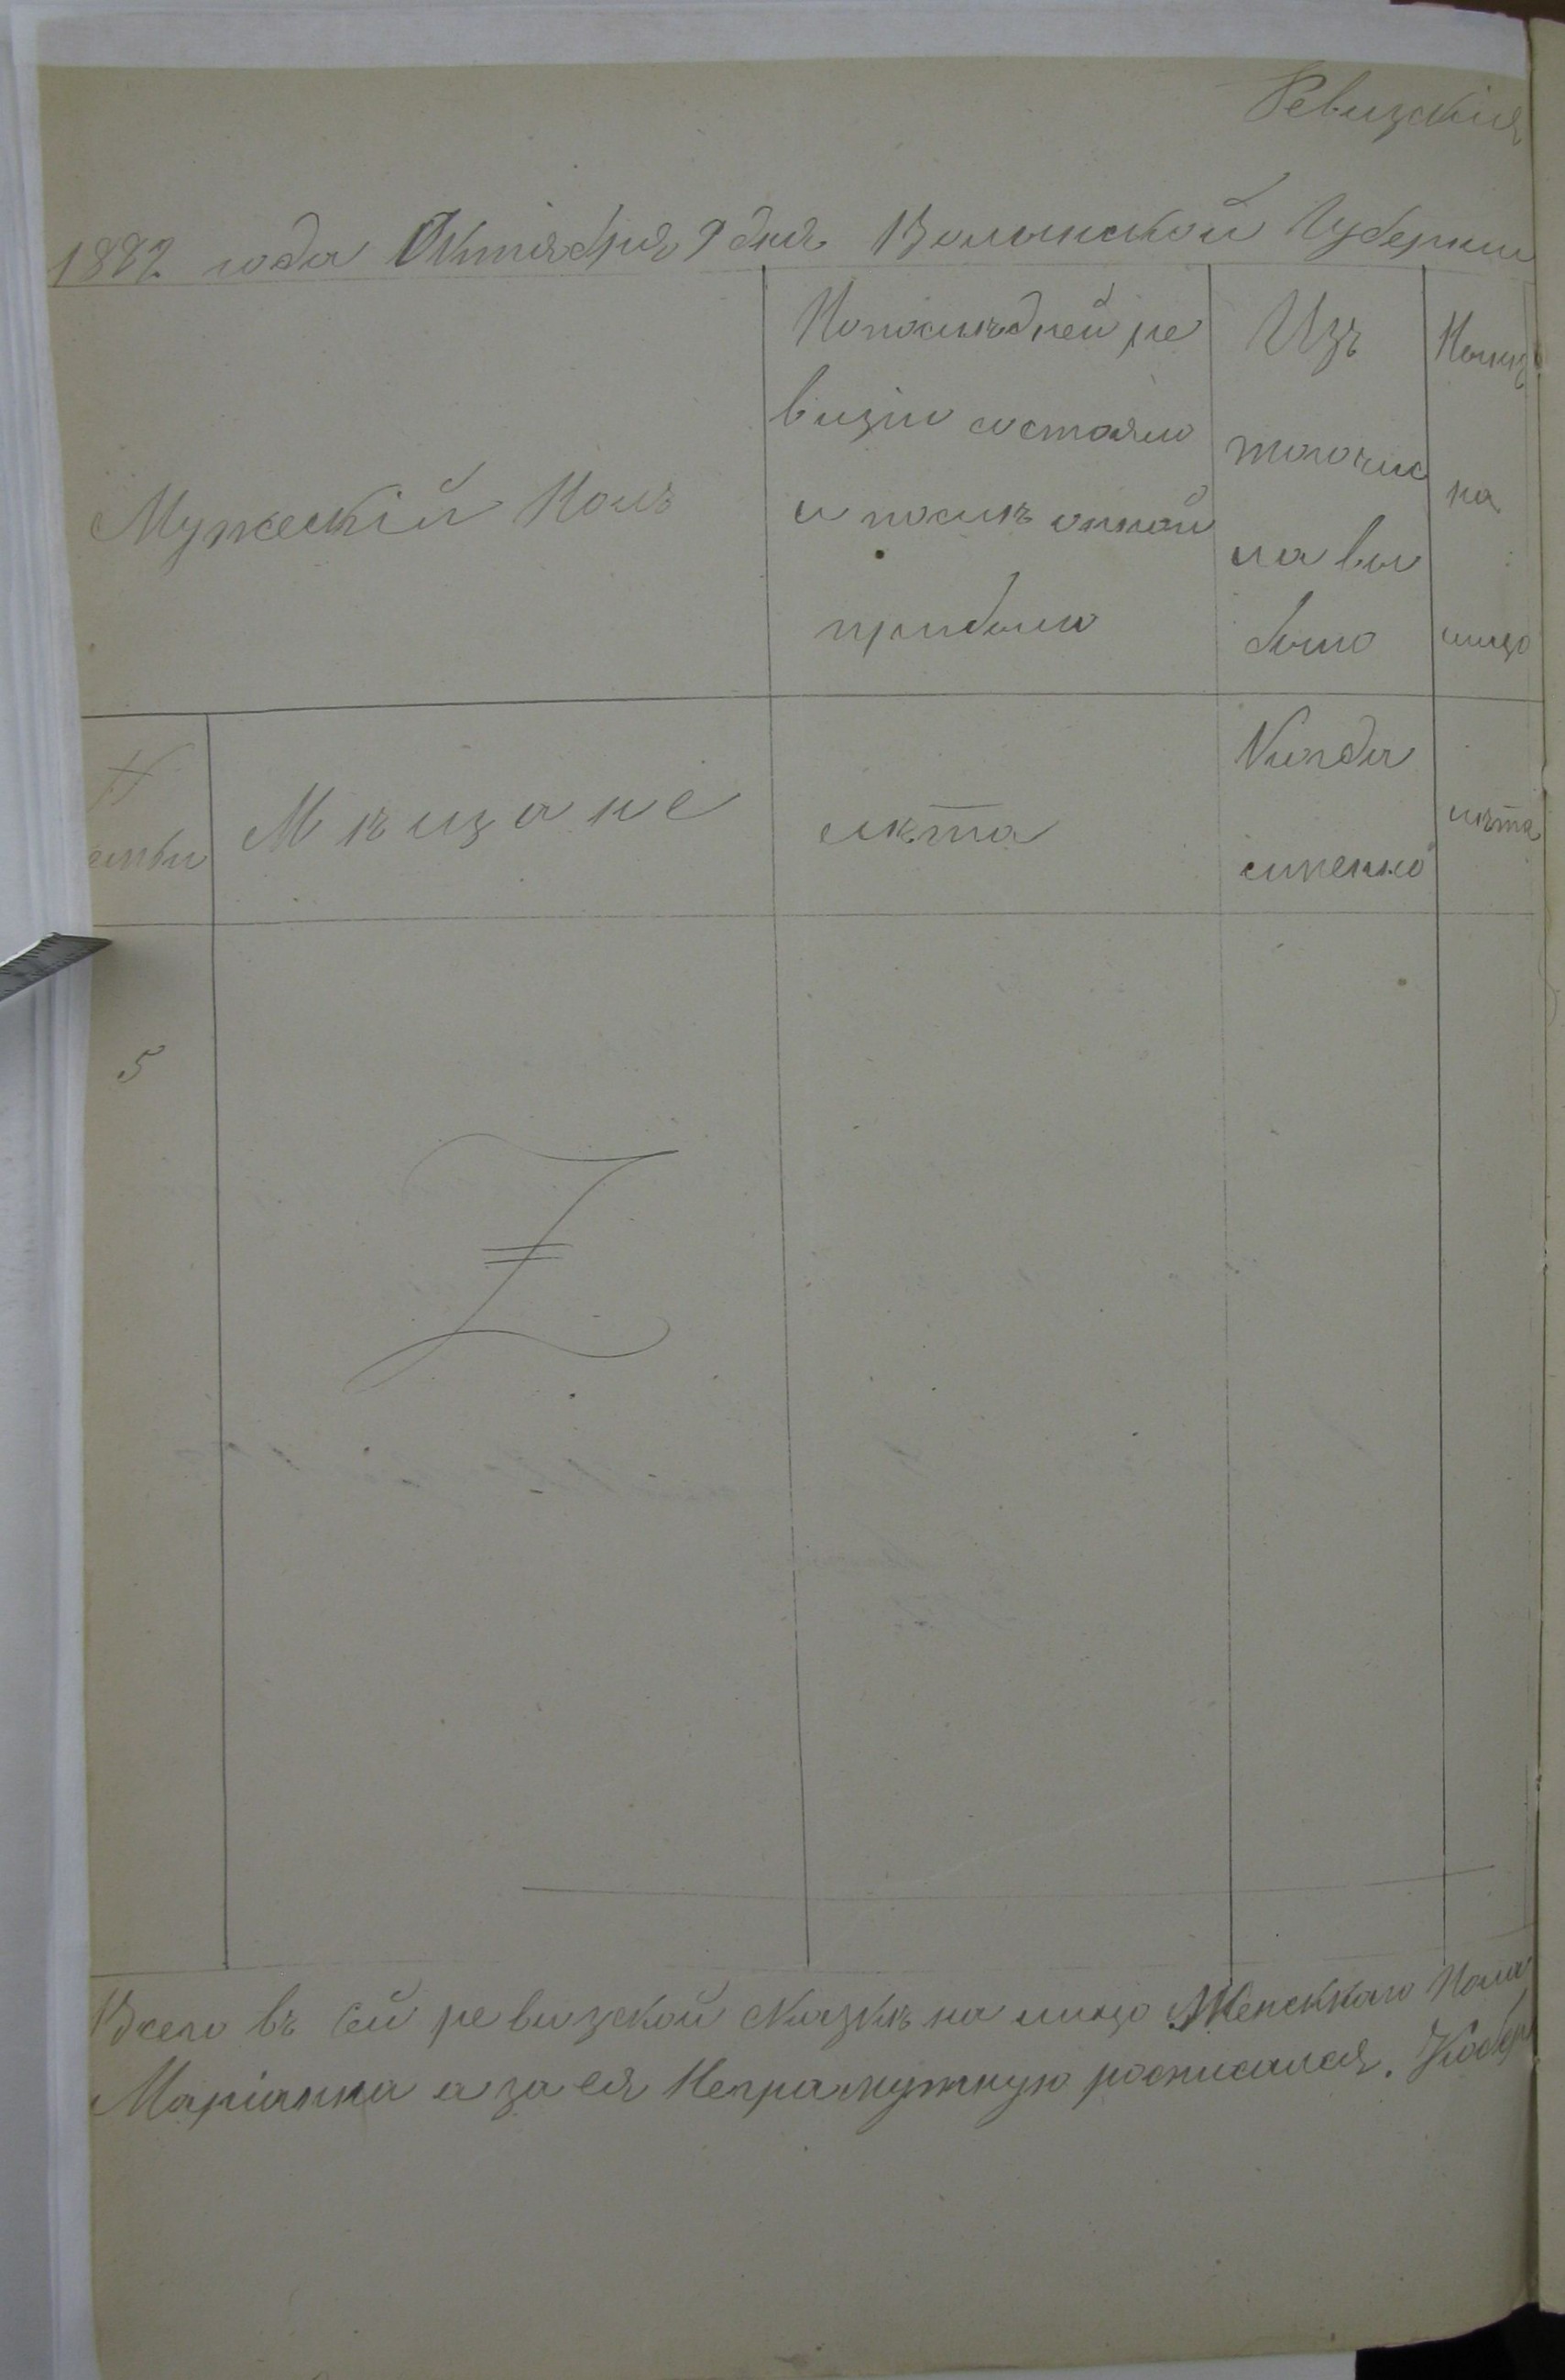 Ревизскія
1882 года Октября 9 дня Волынской Губернии
Мужескій Полъ
Попослѣдней ре
визіи состояло
и послѣ онной
прибыло
Изъ
тогочис
ла вы
было
Нынѣ
на
лицо
№
семьи
Мѣщане
лѣта
Когда
именно
лѣта
5
Всего въ сей ревизской сказкѣ на лицо Женскаго Пола
Маріанна а за ея Неграмутную росписался.